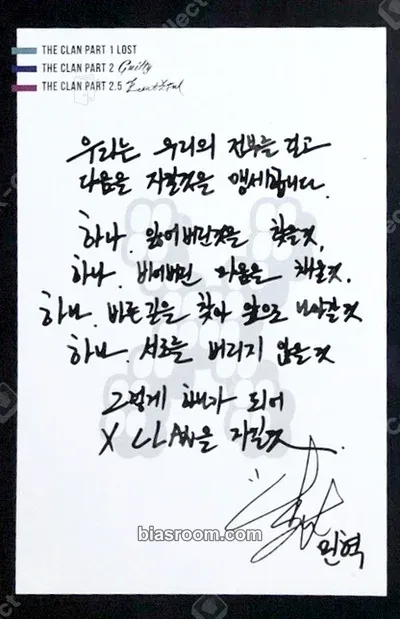 THE CLAN PART 1 LOST
THE CLAN PART 2 Guilty
THE CLAN PART 2.5 Beautiful
우리는 우리의 전부를 걸고
다음을 지킬것을 맹세합니다.
하나. 잃어버린것을 찾을것,
하나. 비어버린 마음을 채울것.
하나. 바른길을 찾아 앞으로 나아갈것
하나. 서로를 버리지 않을것
그렇게 하나가 되어
X CLAN을 지킬것.
민혁
biasroom.com